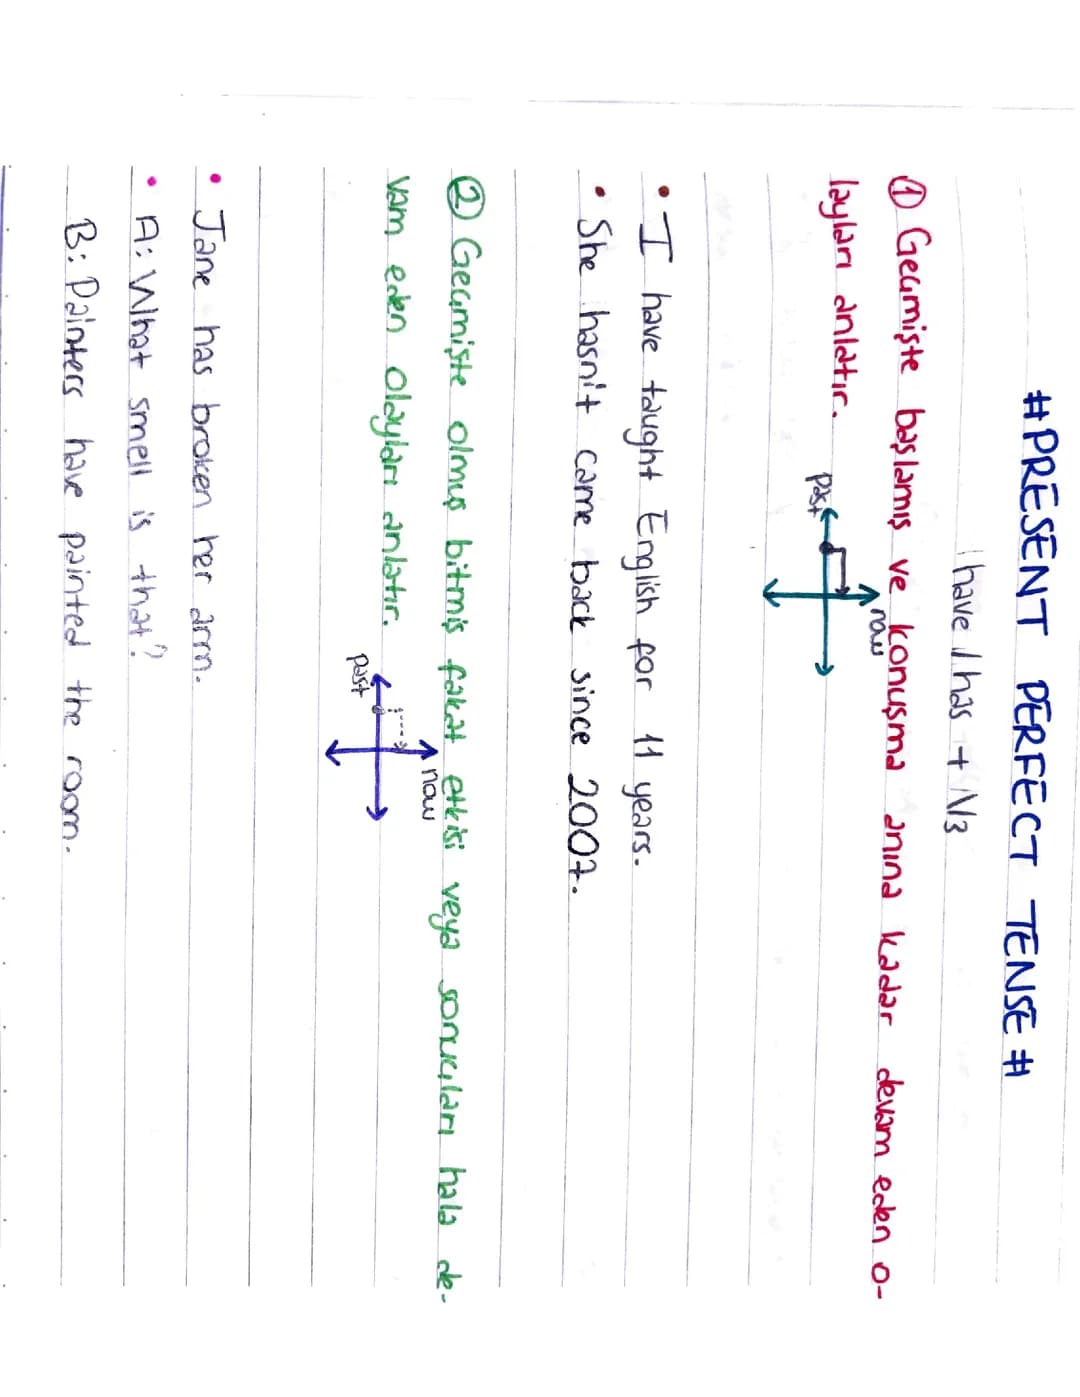 #PRESENT PERFECT TENSE #
have / has + V3
① Geçmişte başlamış ve konuşma anına kadar devam eden o-
layları anlatır.
now
past
• I have taught English for 11 years.
• She hasn't came back since 2007.
② Geçmişte olmuş bitmiş fakat etkisi veya sonuçları hala de-
vam eden olayları anlatır.
now
past
• Jane has broken her arm.
• A: What smell is that?
B: Painters have painted the room.